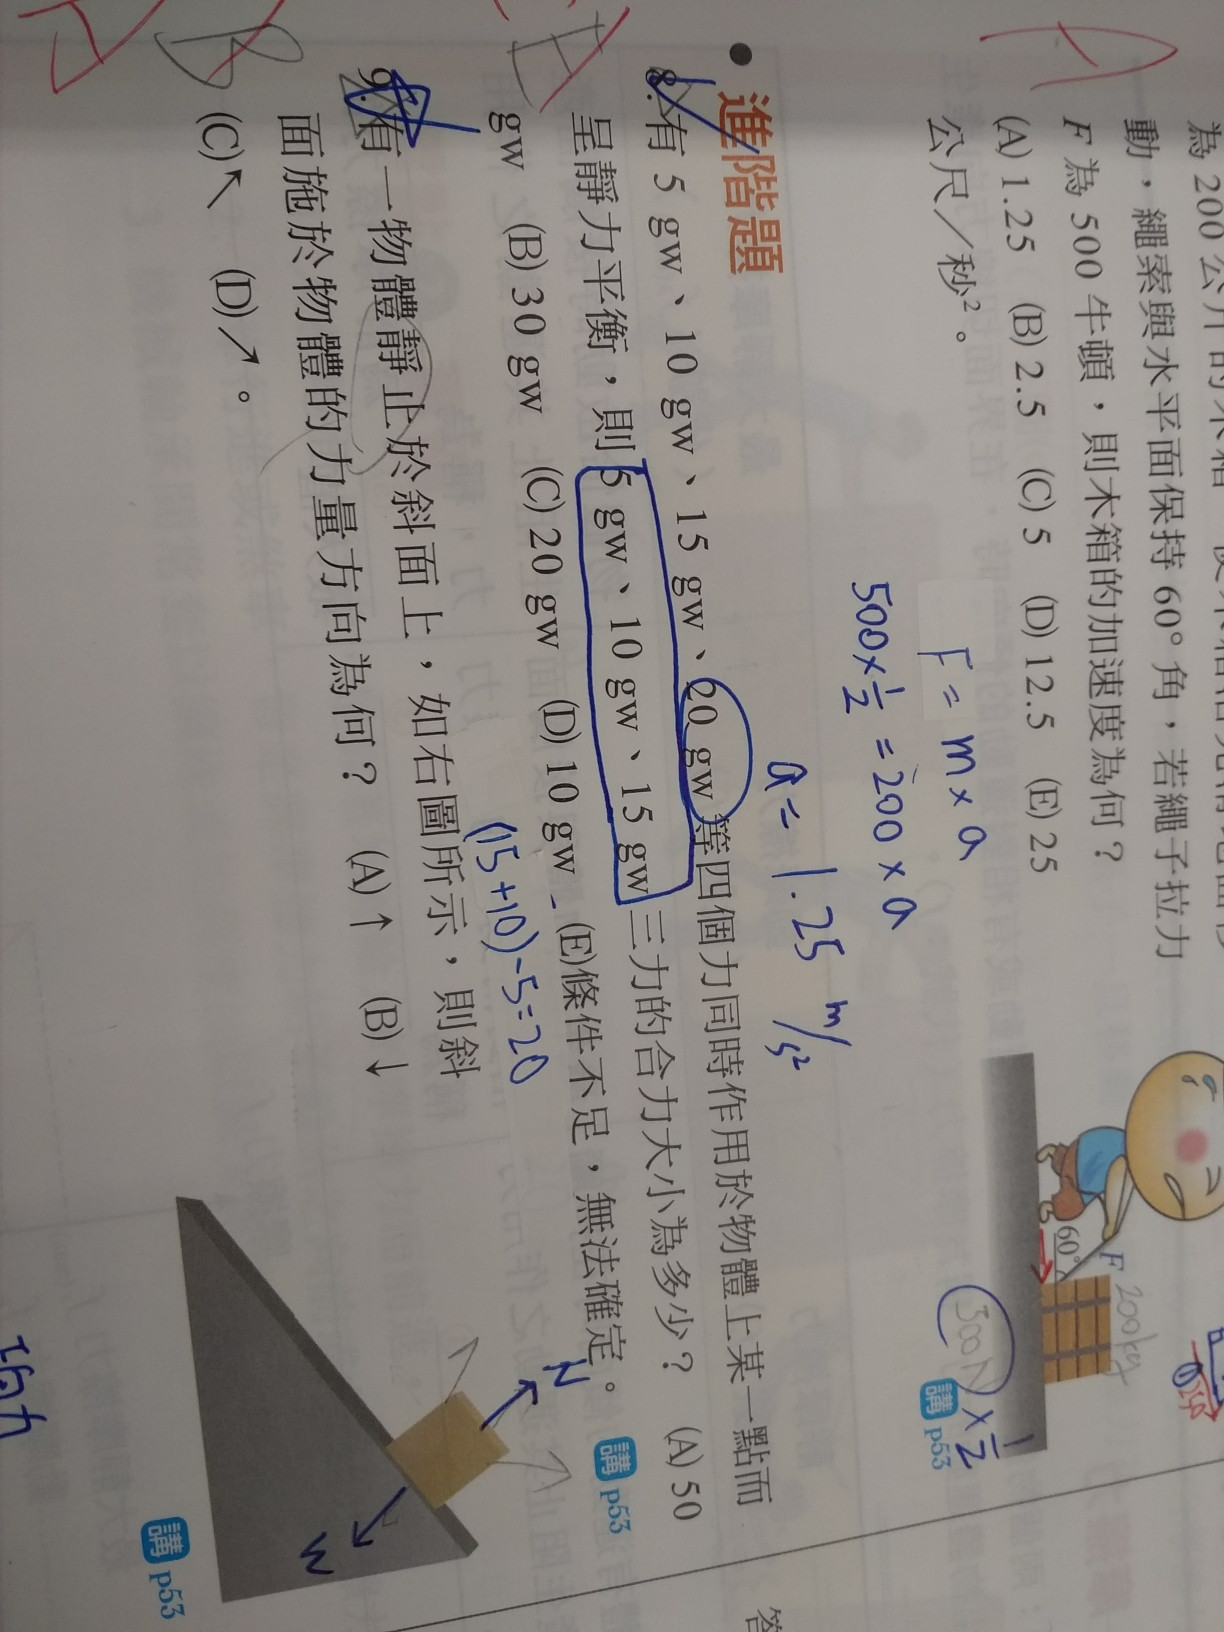 動，繩索與水平面保持 60° 角，若繩子拉力
F 為 500 牛頓，則木箱的加速度為何？
(A) 1.25 (B) 2.5 (C) 5 (D) 12.5 (E) 25
公尺／秒²。
F = m × a
500 × 1/2 = 200 × a
a = 1.25 m/s²
60°
F
200kg
500N × 1/2
講 p53
A
• 進階題
8. 有 5 gw、10 gw、15 gw、20 gw 等四個力同時作用於物體上某一點而
呈靜力平衡，則 5 gw、10 gw、15 gw 三力的合力大小為多少？ (A) 50
gw (B) 30 gw (C) 20 gw (D) 10 gw (E)條件不足，無法確定。
講 p53
(15+10)-5=20
9. 有一物體靜止於斜面上，如右圖所示，則斜
面施於物體的力量方向為何？ (A)↑ (B)↓
(C)↖ (D)↗。
N
W
講 p53
B
答